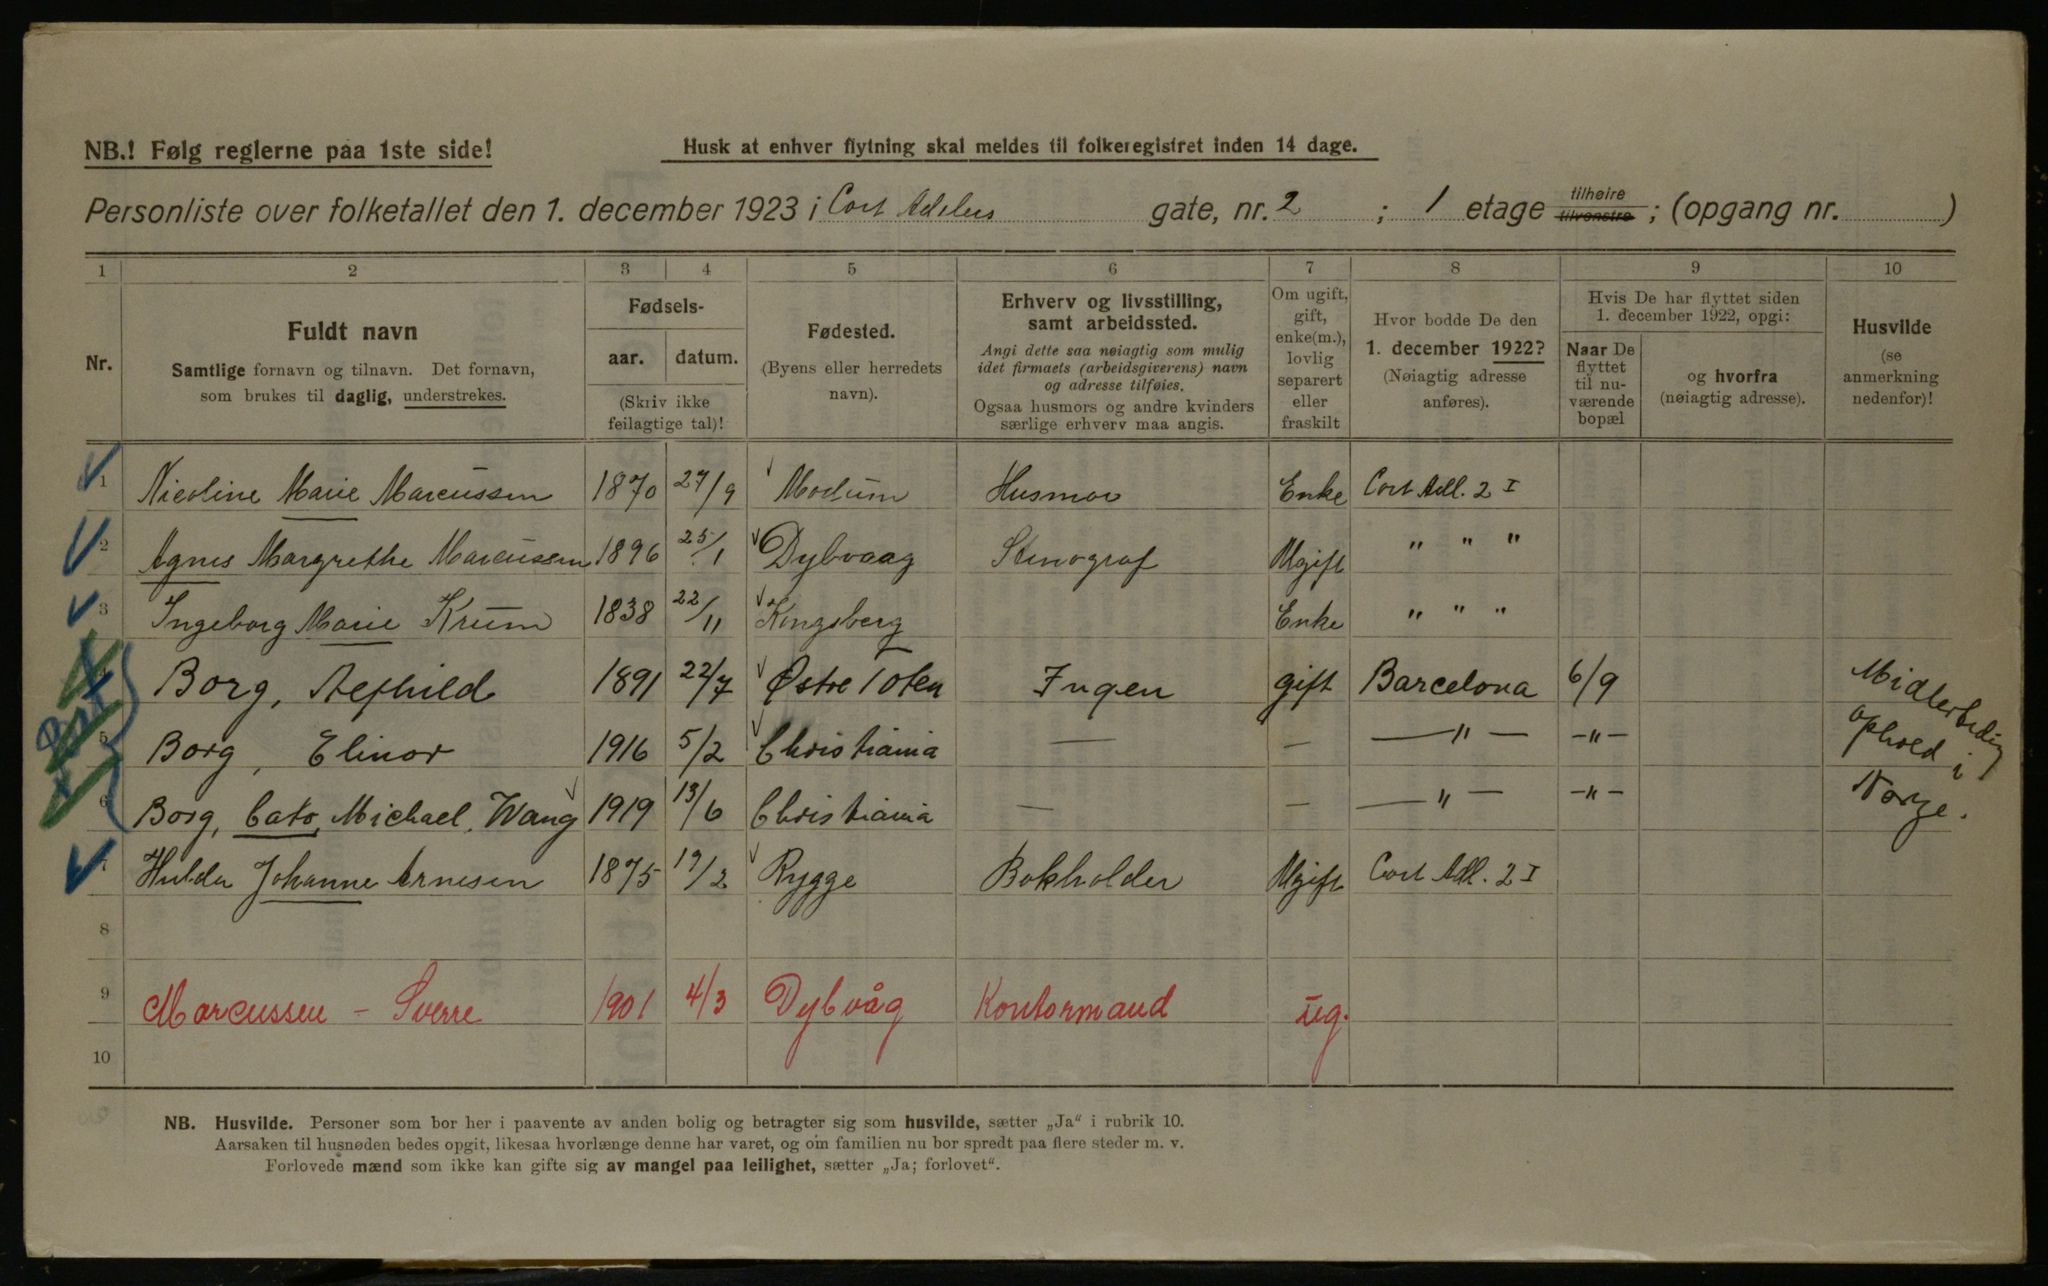 NB.! Følg reglerne paa 1ste side!
Husk at enhver flytning skal meldes til folkeregistret inden 14 dage.
Personliste over folketallet den 1. december 1923 i Cort Adelers gate, nr. 2 ; 1 etage tilhøire tilvenstre ; (opgang nr. )
1 2 3 4 5 6 7 8 9 10
Nr.
Fuldt navn
Samtlige fornavn og tilnavn. Det fornavn,
som brukes til daglig, understrekes.
Fødsels-
aar. datum.
(Skriv ikke
feilagtige tal)!
Fødested.
(Byens eller herredets
navn).
Erhverv og livsstilling,
samt arbeidssted.
Angi dette saa nøiagtig som mulig
idet firmaets (arbeidsgiverens) navn
og adresse tilføies.
Ogsaa husmors og andre kvinders
særlige erhverv maa angis.
Om ugift,
gift,
enke(m.),
lovlig
separert
eller
fraskilt
Hvor bodde De den
1. december 1922?
(Nøiagtig adresse
anføres).
Hvis De har flyttet siden
1. december 1922, opgi:
Naar De
flyttet
til nu-
værende
bopæl
og hvorfra
(nøiagtig adresse).
Husvilde
(se
anmerkning
nedenfor)!
1 Nicoline Marie Marcussen 1870 27/9 Modum Husmor Enke Cort Adl. 2 I
2 Agnes Margrethe Marcussen 1896 25/1 Dybvaag Stenograf Ugift " " "
3 Ingeborg Marie Krum 1838 22/11 Kongsberg Enke " " "
4 Borg, Alfhild 1891 22/7 Østre Toten Ingen gift Barcelona 6/9 Midlertidig
5 Borg, Elinor 1916 5/2 Christiania — — — " — -"- ophold i
6 Borg, Cato, Michael, Wang 1919 13/6 Christiania — — — " — -"- Norge.
7 Hulda Johanne Arnesen 1875 19/2 Rygge Bokholder Ugift Cort Adl. 2 I
8
9 Marcussen - Sverre 1901 4/3 Dybvåg Kontormand ug.
10
NB. Husvilde. Personer som bor her i paavente av anden bolig og betragter sig som husvilde, sætter „Ja“ i rubrik 10.
Aarsaken til husnøden bedes opgit, likesaa hvorlænge denne har varet, og om familien nu bor spredt paa flere steder m. v.
Forlovede mænd som ikke kan gifte sig av mangel paa leilighet, sætter „Ja; forlovet“.